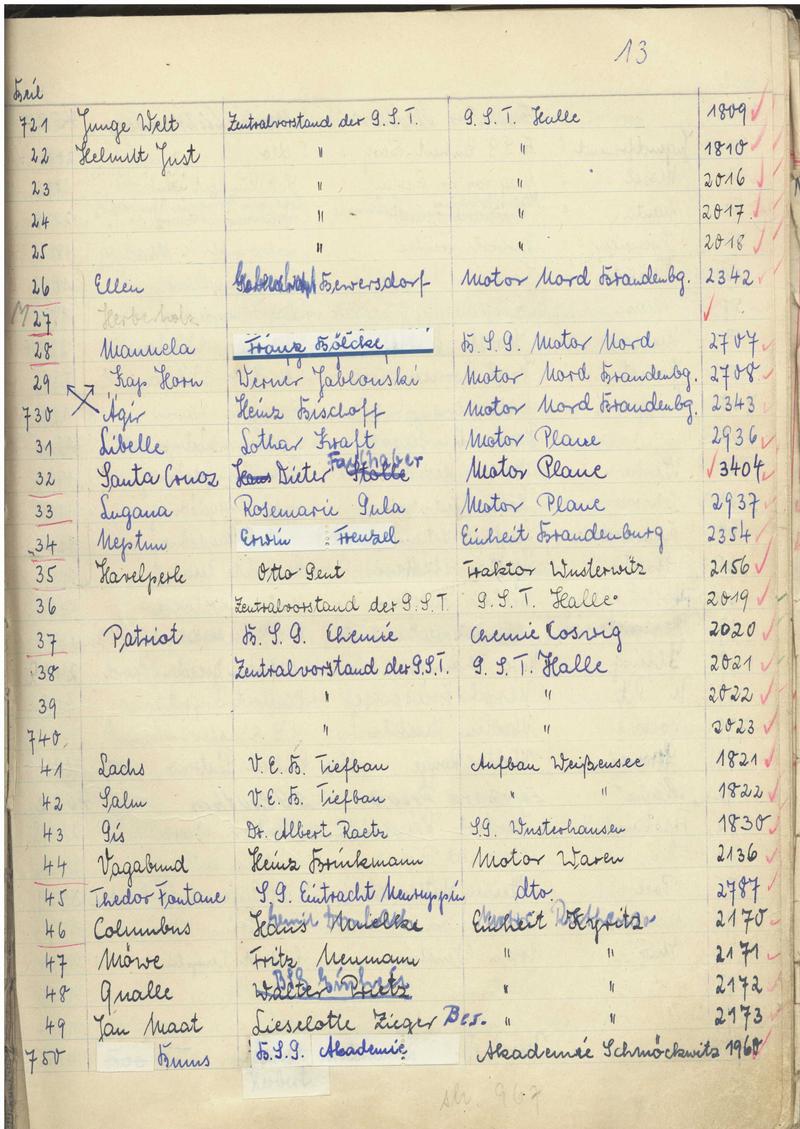 13
721 Junge Welt Zentralvorstand der G.S.T. G.S.T. Halle 1809
22 Helmut Just " " 1810
23 " " 2016
24 " " 2017
25 " " 2018
26 Ellen Bewersdorf Motor Nord Brandenbg. 2342
27 Herberholz
28 Manuela Franz Bölcke B.S.G. Motor Nord 2707
29 Kap Horn Werner Jablonski Motor Nord Brandenbg. 2708
730 Ägir Heinz Bischoff Motor Nord Brandenbg. 2343
31 Libelle Lothar Kraft Motor Plaue 2936
32 Santa Cruoz Hans Dieter Stolle Faulhaber Motor Plaue 3404
33 Lugana Rosemarie Gula Motor Plaue 2937
34 Neptun Erwin Frenzel Einheit Brandenburg 2354
35 Havelperle Otto Gent Traktor Wusterwitz 2156
36 Zentralvorstand der G.S.T. G.S.T. Halle 2019
37 Patriot B.S.G. Chemie Chemie Coswig 2020
38 Zentralvorstand der G.S.T. G.S.T. Halle 2021
39 " " 2022
740 " " 2023
41 Lachs V.E.B. Tiefbau Aufbau Weißensee 1821
42 Salm V.E.B. Tiefbau " " 1822
43 Gis Dr. Albert Raetz S.G. Wusterhausen 1830
44 Vagabund Heinz Brinkmann Motor Waren 2136
45 Thedor Fontane S.G. Eintracht Neuruppin dto. 2787
46 Columbus Hans Einheit Kyritz 2170
47 Möwe Fritz Neumann " " 2171
48 Qualle Walter BSG Einheit " " 2172
49 Jan Maat Lieselotte Zieger Bes. " " 2173
750 B.S.G. Akademie Akademie Schmöckwitz 1960